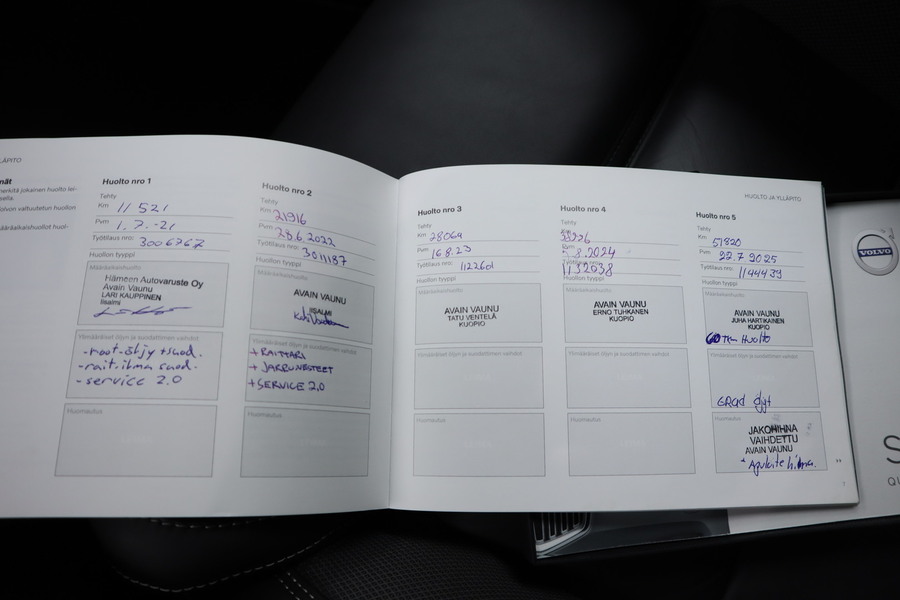 LÄPITO
mät
merkitä jokainen huolto tei-
sella.
Volvon valtuutetun huollon
määräaikaishuollot huol-
Huolto nro 1
Tehty
Km 11 521
Pvm 1.7.-21
Työtilaus nro: 3006767
Huollon tyyppi
Määräaikaishuolto
Hämeen Autovaruste Oy
Avain Vaunu
LARI KAUPPINEN
Iisalmi
Ylimääräiset öljyn ja suodattimen vaihdot
- moot.öljy + suod.
- rait.ilma suod.
- service 2.0
Huomautus
Huolto nro 2
Tehty
Km 21916
Pvm 28.6.2022
Työtilaus nro: 3011187
Huollon tyyppi
Määräaikaishuolto
AVAIN VAUNU
IISALMI
Ylimääräiset öljyn ja suodattimen vaihdot
+ RAITTARI
+ JARRUNESTEET
+ SERVICE 2,0
Huomautus
Huolto nro 3
Tehty
Km 28069
Pvm 16.8.23
Työtilaus nro: 112260
Huollon tyyppi
Määräaikaishuolto
AVAIN VAUNU
TATU VENTELÄ
KUOPIO
Ylimääräiset öljyn ja suodattimen vaihdot
Huomautus
Huolto nro 4
Tehty
Km
Pvm 8.2024
Työtilaus nro: 1132038
Huollon tyyppi
Määräaikaishuolto
AVAIN VAUNU
ERNO TUHKANEN
KUOPIO
Ylimääräiset öljyn ja suodattimen vaihdot
Huomautus
HUOLTO JA YLLÄPITO
Huolto nro 5
Tehty
Km 51820
Pvm 22.7.2025
Työtilaus nro: 1144439
Huollon tyyppi
Määräaikaishuolto
AVAIN VAUNU
JUHA HARTIKAINEN
KUOPIO
60 tkm Huolto
Ylimääräiset öljyn ja suodattimen vaihdot
GRad öljyt
Huomautus
JAKOHIHNA
VAIHDETTU
AVAIN VAUNU
+ Apulaite hihna.
››
7
VOLVO
S
QU